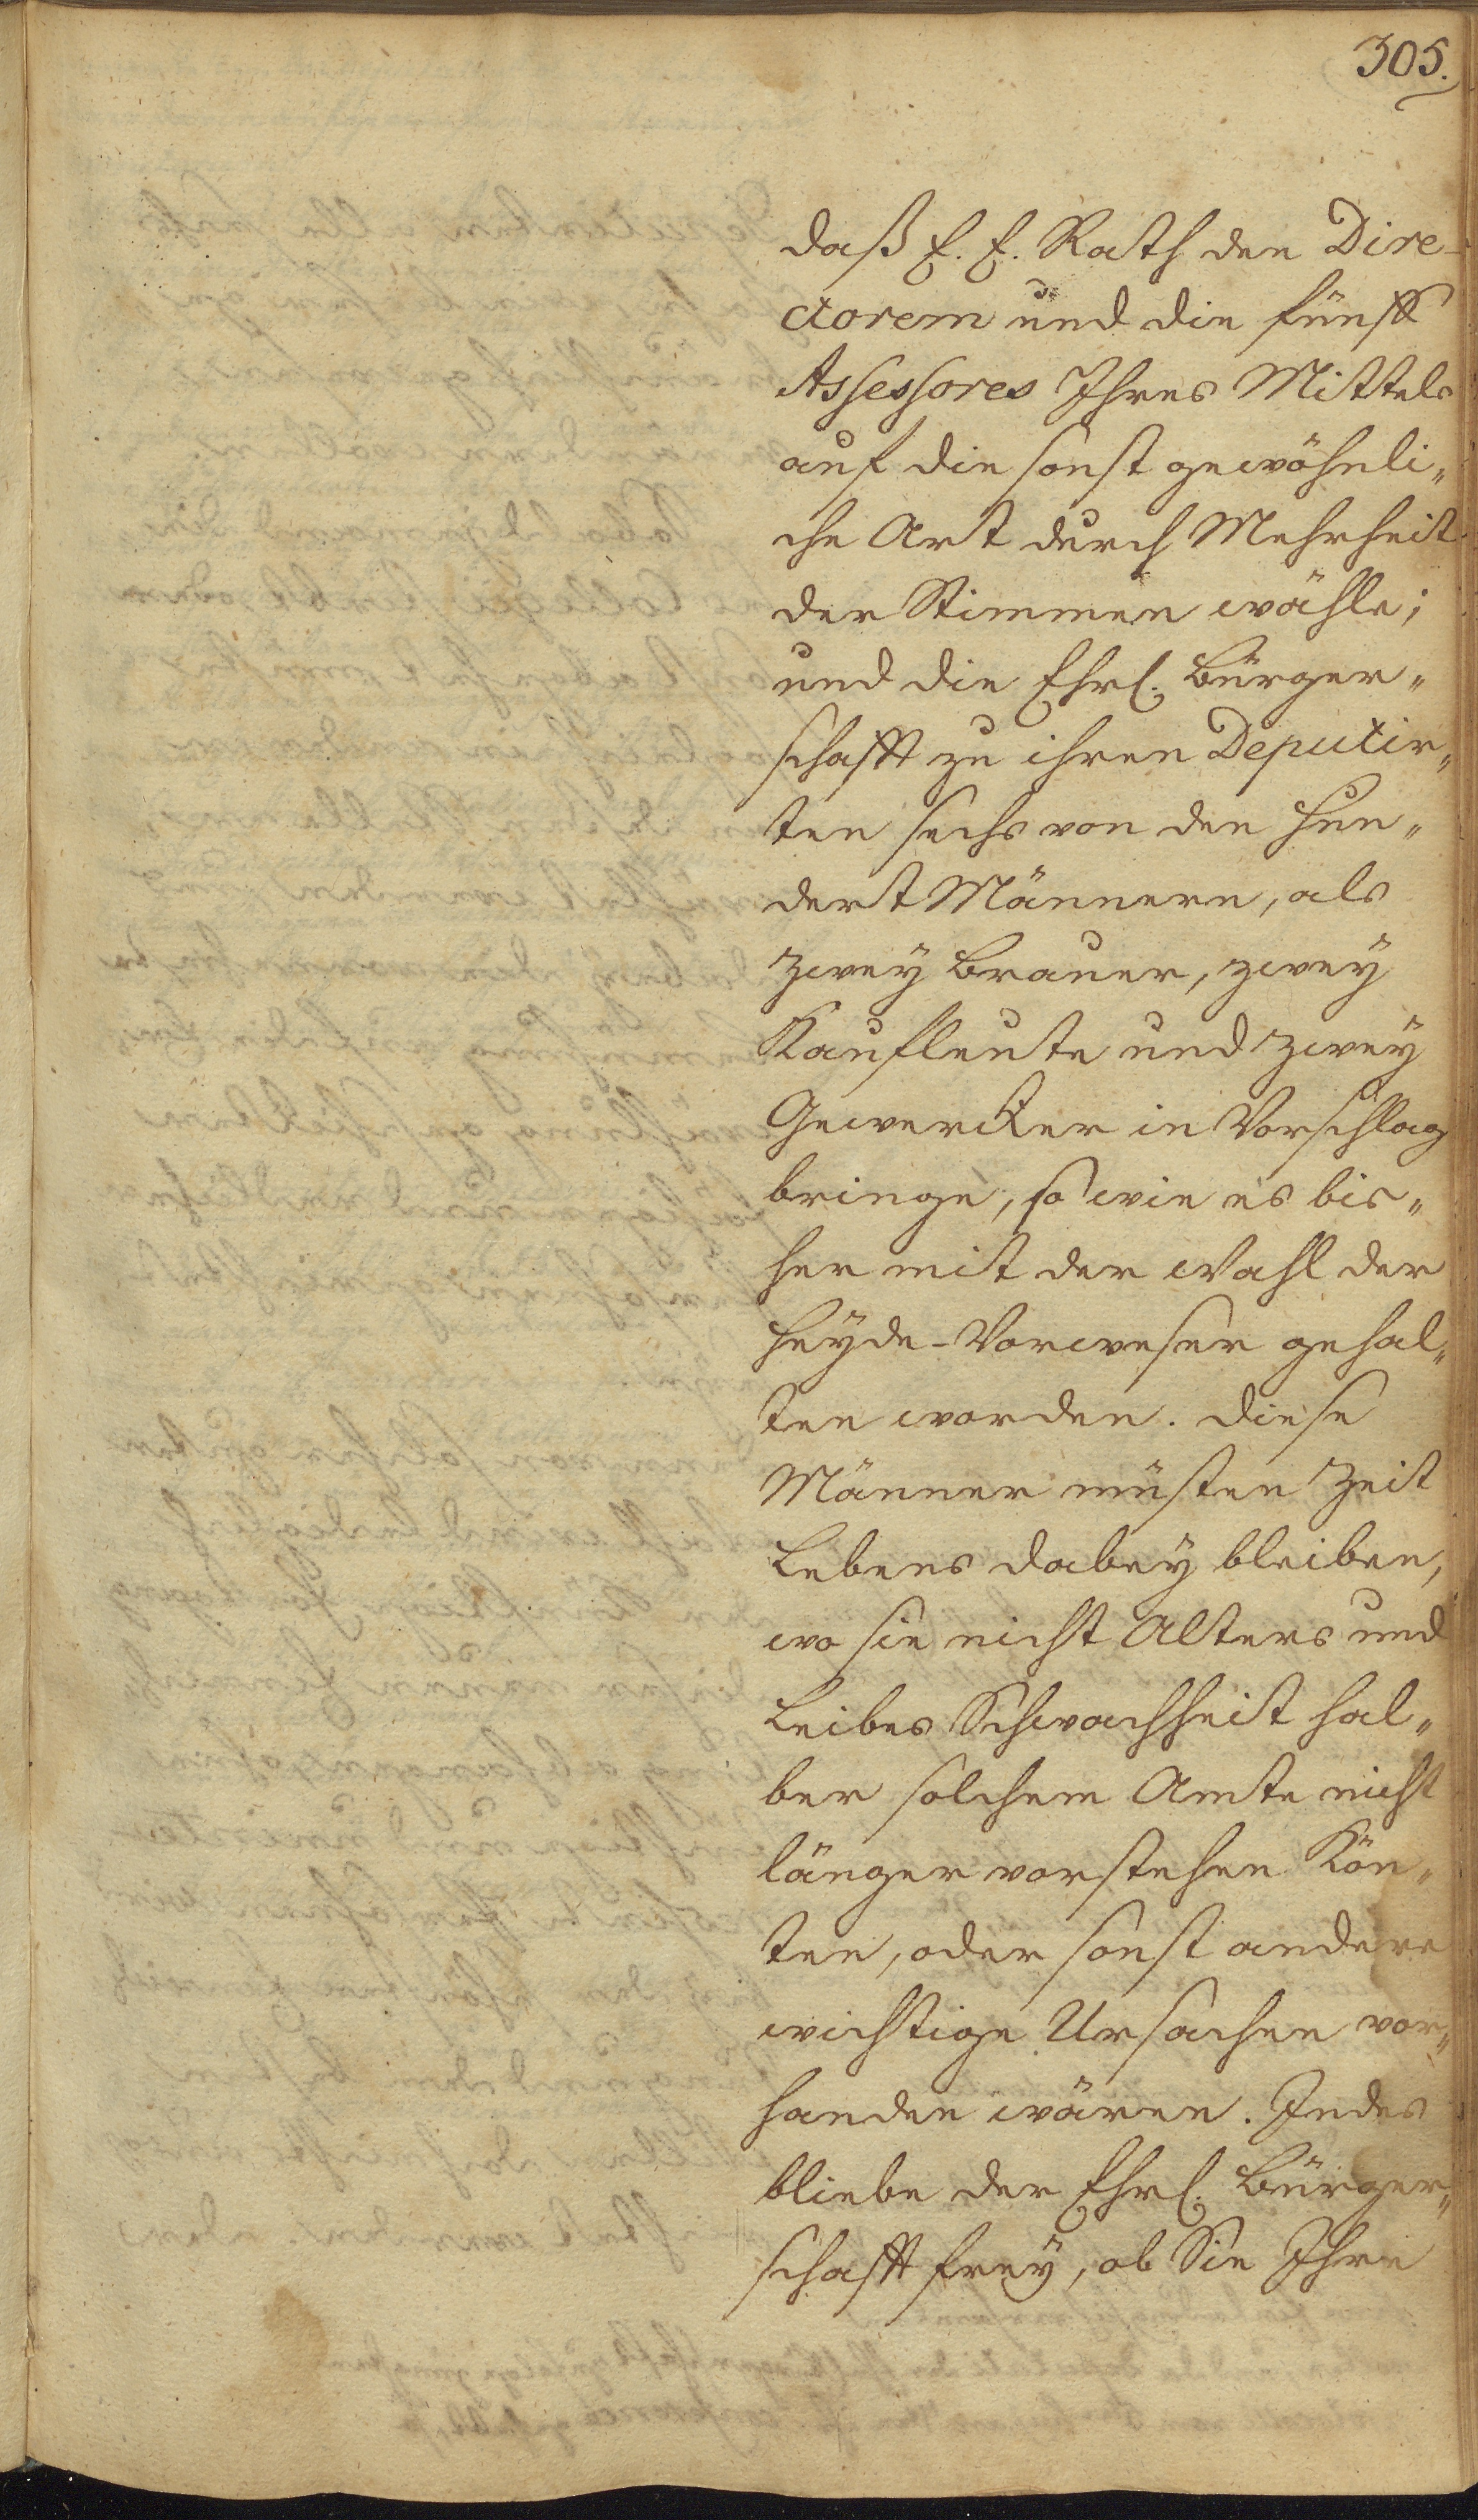 305.
daß E. E. Rath den Dire-
ctorem und die fünff
Assessores Ihres Mittels
auf die sonst gewöhnli„
che Art durch Mehrheit
der Stimmen wähle;
und die Ehrl. Bürger„
schafft zu ihren Deputir„
ten sechs von den Hun„
dert Männern, als
zwey Brauer, zwey
Kaufleute und zwey
Gewercker in Vorschlag
bringe, so wie es bis„
her mit der Wahl der
Heyde-Vorweser gehal„
ten worden. Diese
Männer müsten Zeit
Lebens dabey bleiben,
wo sie nicht Alters und
Leibes Schwachheit hal„
ber solchem Amte nicht
länger vorstehen kön„
ten, oder sonst andere
wichtige Ursachen vor„
handen wären. Indes
bliebe der Ehrl. Bürger„
schafft frey, ob Sie Ihre